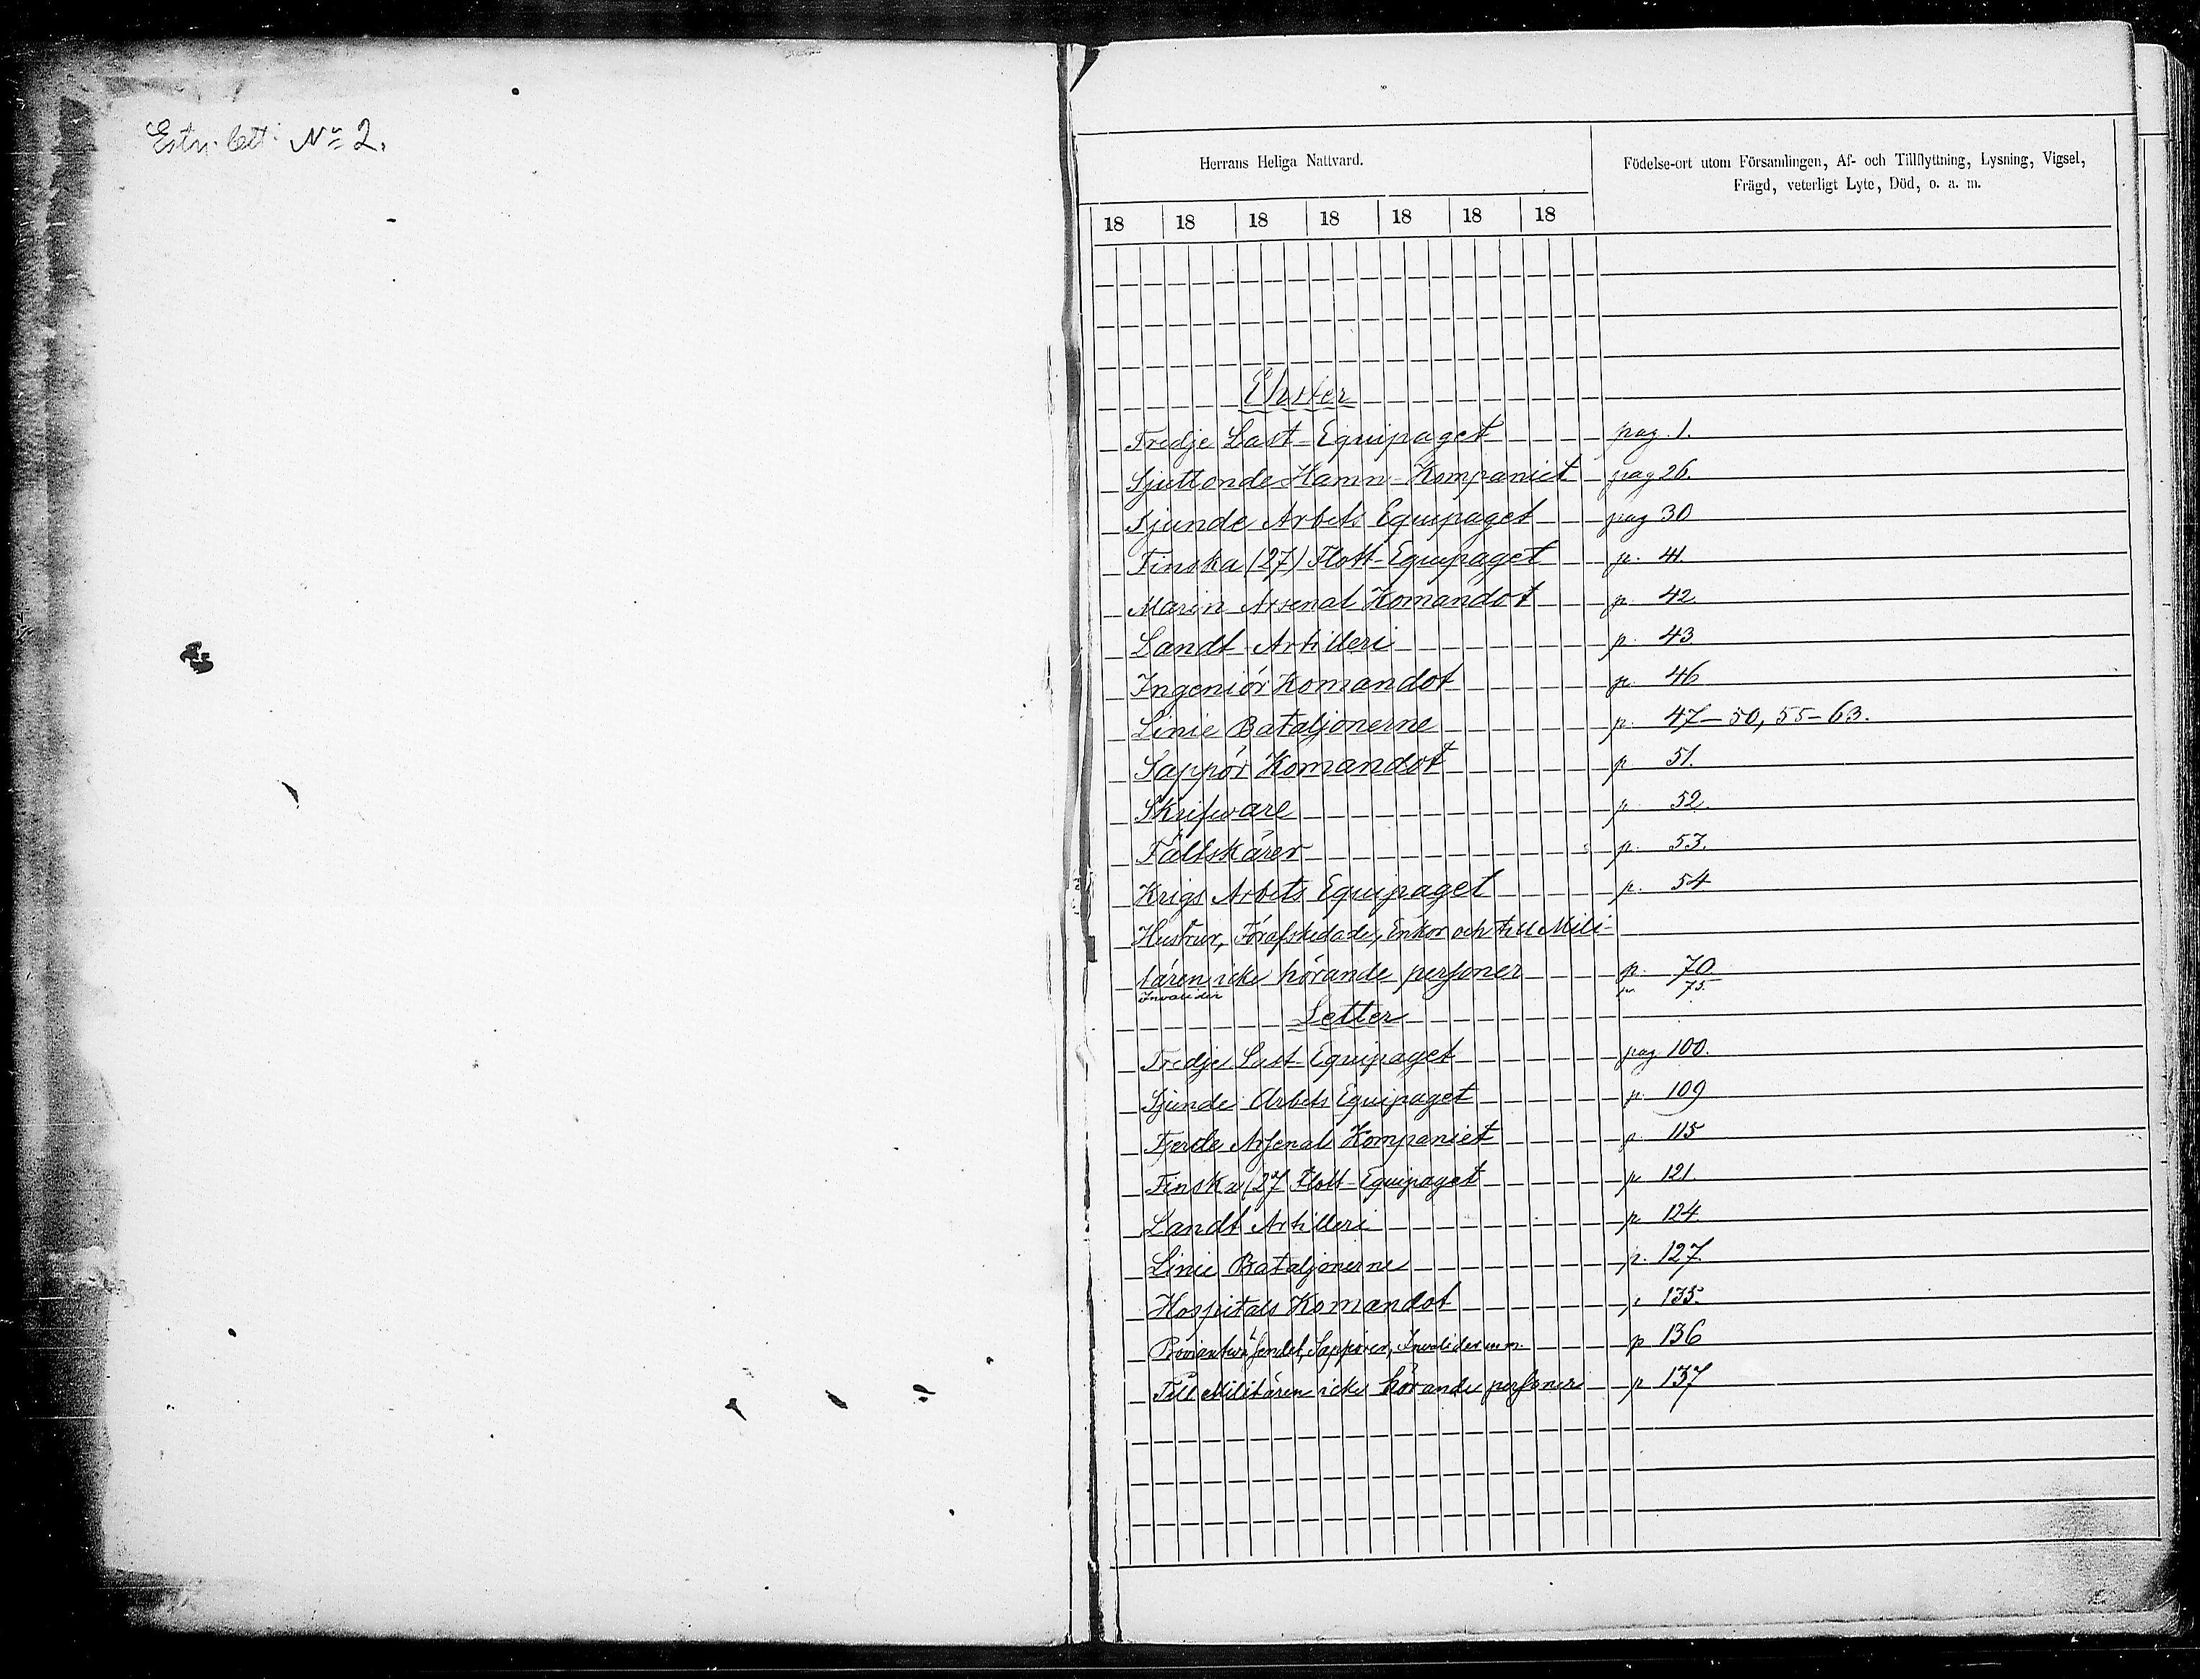 Estn. lett. No 2.
Herrans Heliga Nattvard.
Födelse-ort utom Församlingen, Af- och Tillflyttning, Lysning, Vigsel,
Frägd, veterligt Lyte, Död, o. a. m.
18 18 18 18 18 18 18
Ehster
Tredje Last-Equipaget pag. 1.
Sjuttonde Hamn-Kompaniet pag 26.
Sjunde Arbets Equipaget pag 30
Finska (27) Flott-Equipaget p. 41.
Marin Arsenal Komandot p. 42
Landt Artilleri p. 43
Ingeniör Komandot p. 46
Linie Bataljonerne p. 47-50, 55-63.
Sappör Komandot p 51.
Skrifware p. 52.
Fältskärer p. 53.
Krigs Arbets Equipaget p. 54
Hustrur, Förafskedade, Enkor och till Mili-
tären icke hörande personer p. 70
Invalider p. 75.
Letter
Tredje Last-Equipaget pag 100.
Sjunde Arbets Equipaget p. 109
Fjerde Arsenals Kompaniet p. 115
Finska (27 Flott-Equipaget p 121.
Landt Artilleri p 124.
Linie Bataljonerne p. 127.
Hospitals Komandot p 135.
Proviantwäsendet, Sappörer, Invalider m.m. p 136
Till Militären icke hörande personer p 137